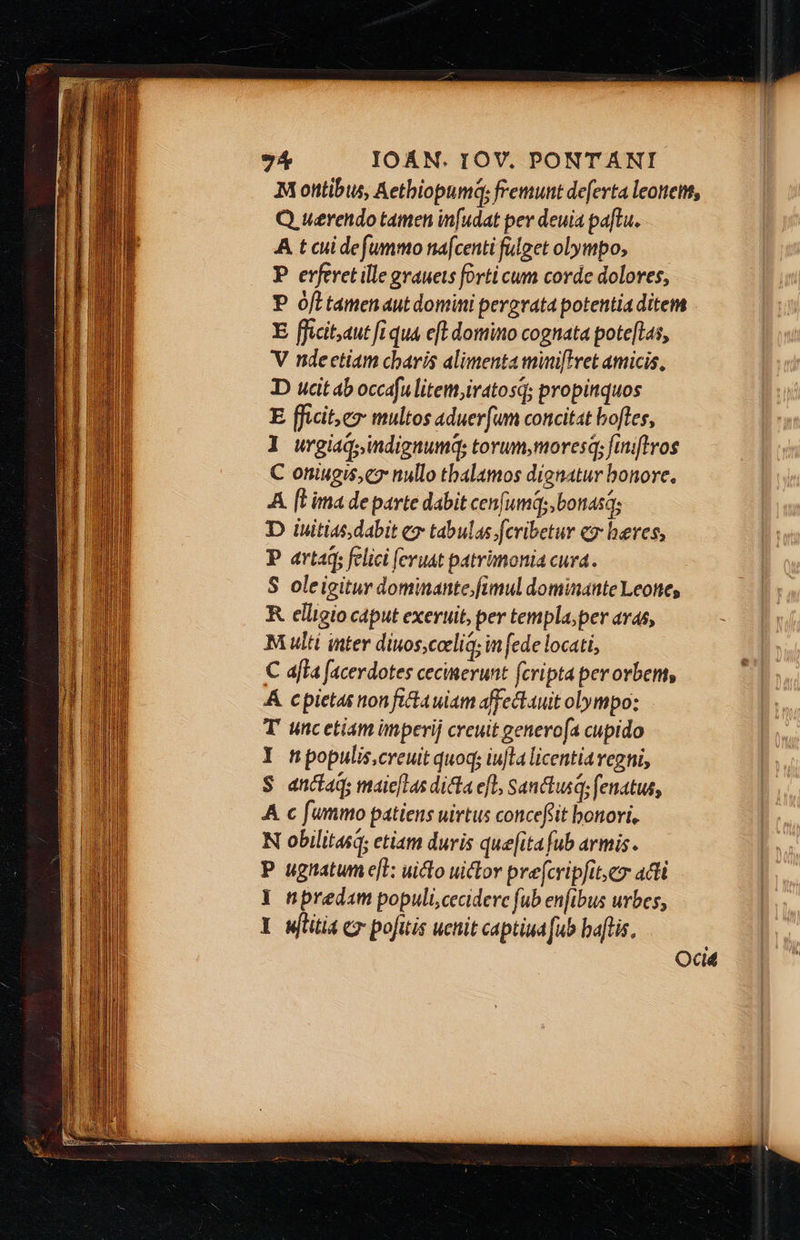 74 IOAN. IOV. PONTANI
M ontibus, Aethiopumq; fremunt deſerta leonem,
Q uærendo tamen inſudat per deuia paſtu.
A t cui de ſummo naſcenti fulget olympo,
P erferet ille graueis forti cum corde dolores,
P oſt tamen aut domini pergrata potentia ditem
E fficit, aut ſi qua eſt domino cognata poteſtas,
V nde etiam charis alimenta miniſtret amicis.
D ucit ab occaſu litem, iratosq; propinquos
E fficit, & multos aduerſum concitat hoſtes,
I urgiaq;, indignumq; torum, moresq; ſiniſtros
C oniugis, & nullo thalamos dignatur honore.
A ſt ima de parte dabit cenſumq;, bonasq;
D iuitias, dabit & tabulas, ſcribetur & hæres,
P artaq; felici ſeruat patrimonia cura.
S ole igitur dominante, ſimul dominante Leone,
R elligio caput exeruit, per templa, per aras,
M ulti inter diuos, cœliq; in ſede locati,
C aſta ſacerdotes cecinerunt ſcripta per orbem,
A c pietas non ficta uiam affectauit olympo:
T unc etiam imperij creuit generoſa cupido
I n populis, creuit quoq; iuſta licentia regni,
S anctaq; maieſtas dicta eſt, Sanctusq; ſenatus,
A c ſummo patiens uirtus conceſsit honori,
N obilitasq; etiam duris quæſita ſub armis.
P ugnatum eſt: uicto uictor præſcripſit, & acti
I n prædam populi, cecidere ſub enſibus urbes,
I uſtitia & poſitis uenit captiua ſub haſtis.
Ocia